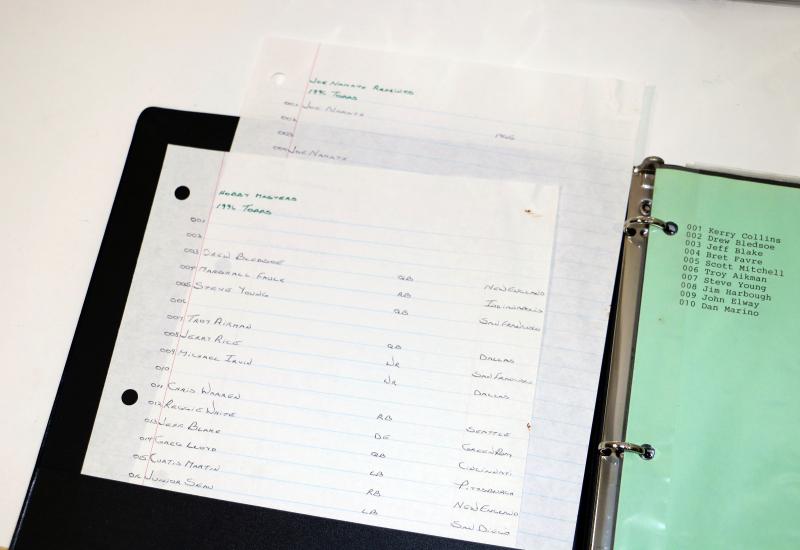 JOE NAMATH
1996 TOPPS
001 JOE NAMATH
002
003
004 JOE NAMATH
HOBBY MASTERS
1996 TOPPS
001
002
003 DREW BLEDSOE QB NEW ENGLAND
004 MARSHALL FAULK RB INDIANAPOLIS
005 STEVE YOUNG QB SAN FRANCISCO
006
007 TROY AIKMAN QB DALLAS
008 JERRY RICE WR SAN FRANCISCO
009 MICHAEL IRVIN WR DALLAS
010
011 CHRIS WARREN RB SEATTLE
012 REGGIE WHITE DE GREEN BAY
013 JEFF BLAKE QB CINCINNATI
014 GREG LLOYD LB PITTSBURGH
015 CURTIS MARTIN RB NEW ENGLAND
016 JUNIOR SEAU LB SAN DIEGO
001 Kerry Collins
002 Drew Bledsoe
003 Jeff Blake
004 Bret Favre
005 Scott Mitchell
006 Troy Aikman
007 Steve Young
008 Jim Harbough
009 John Elway
010 Dan Marino